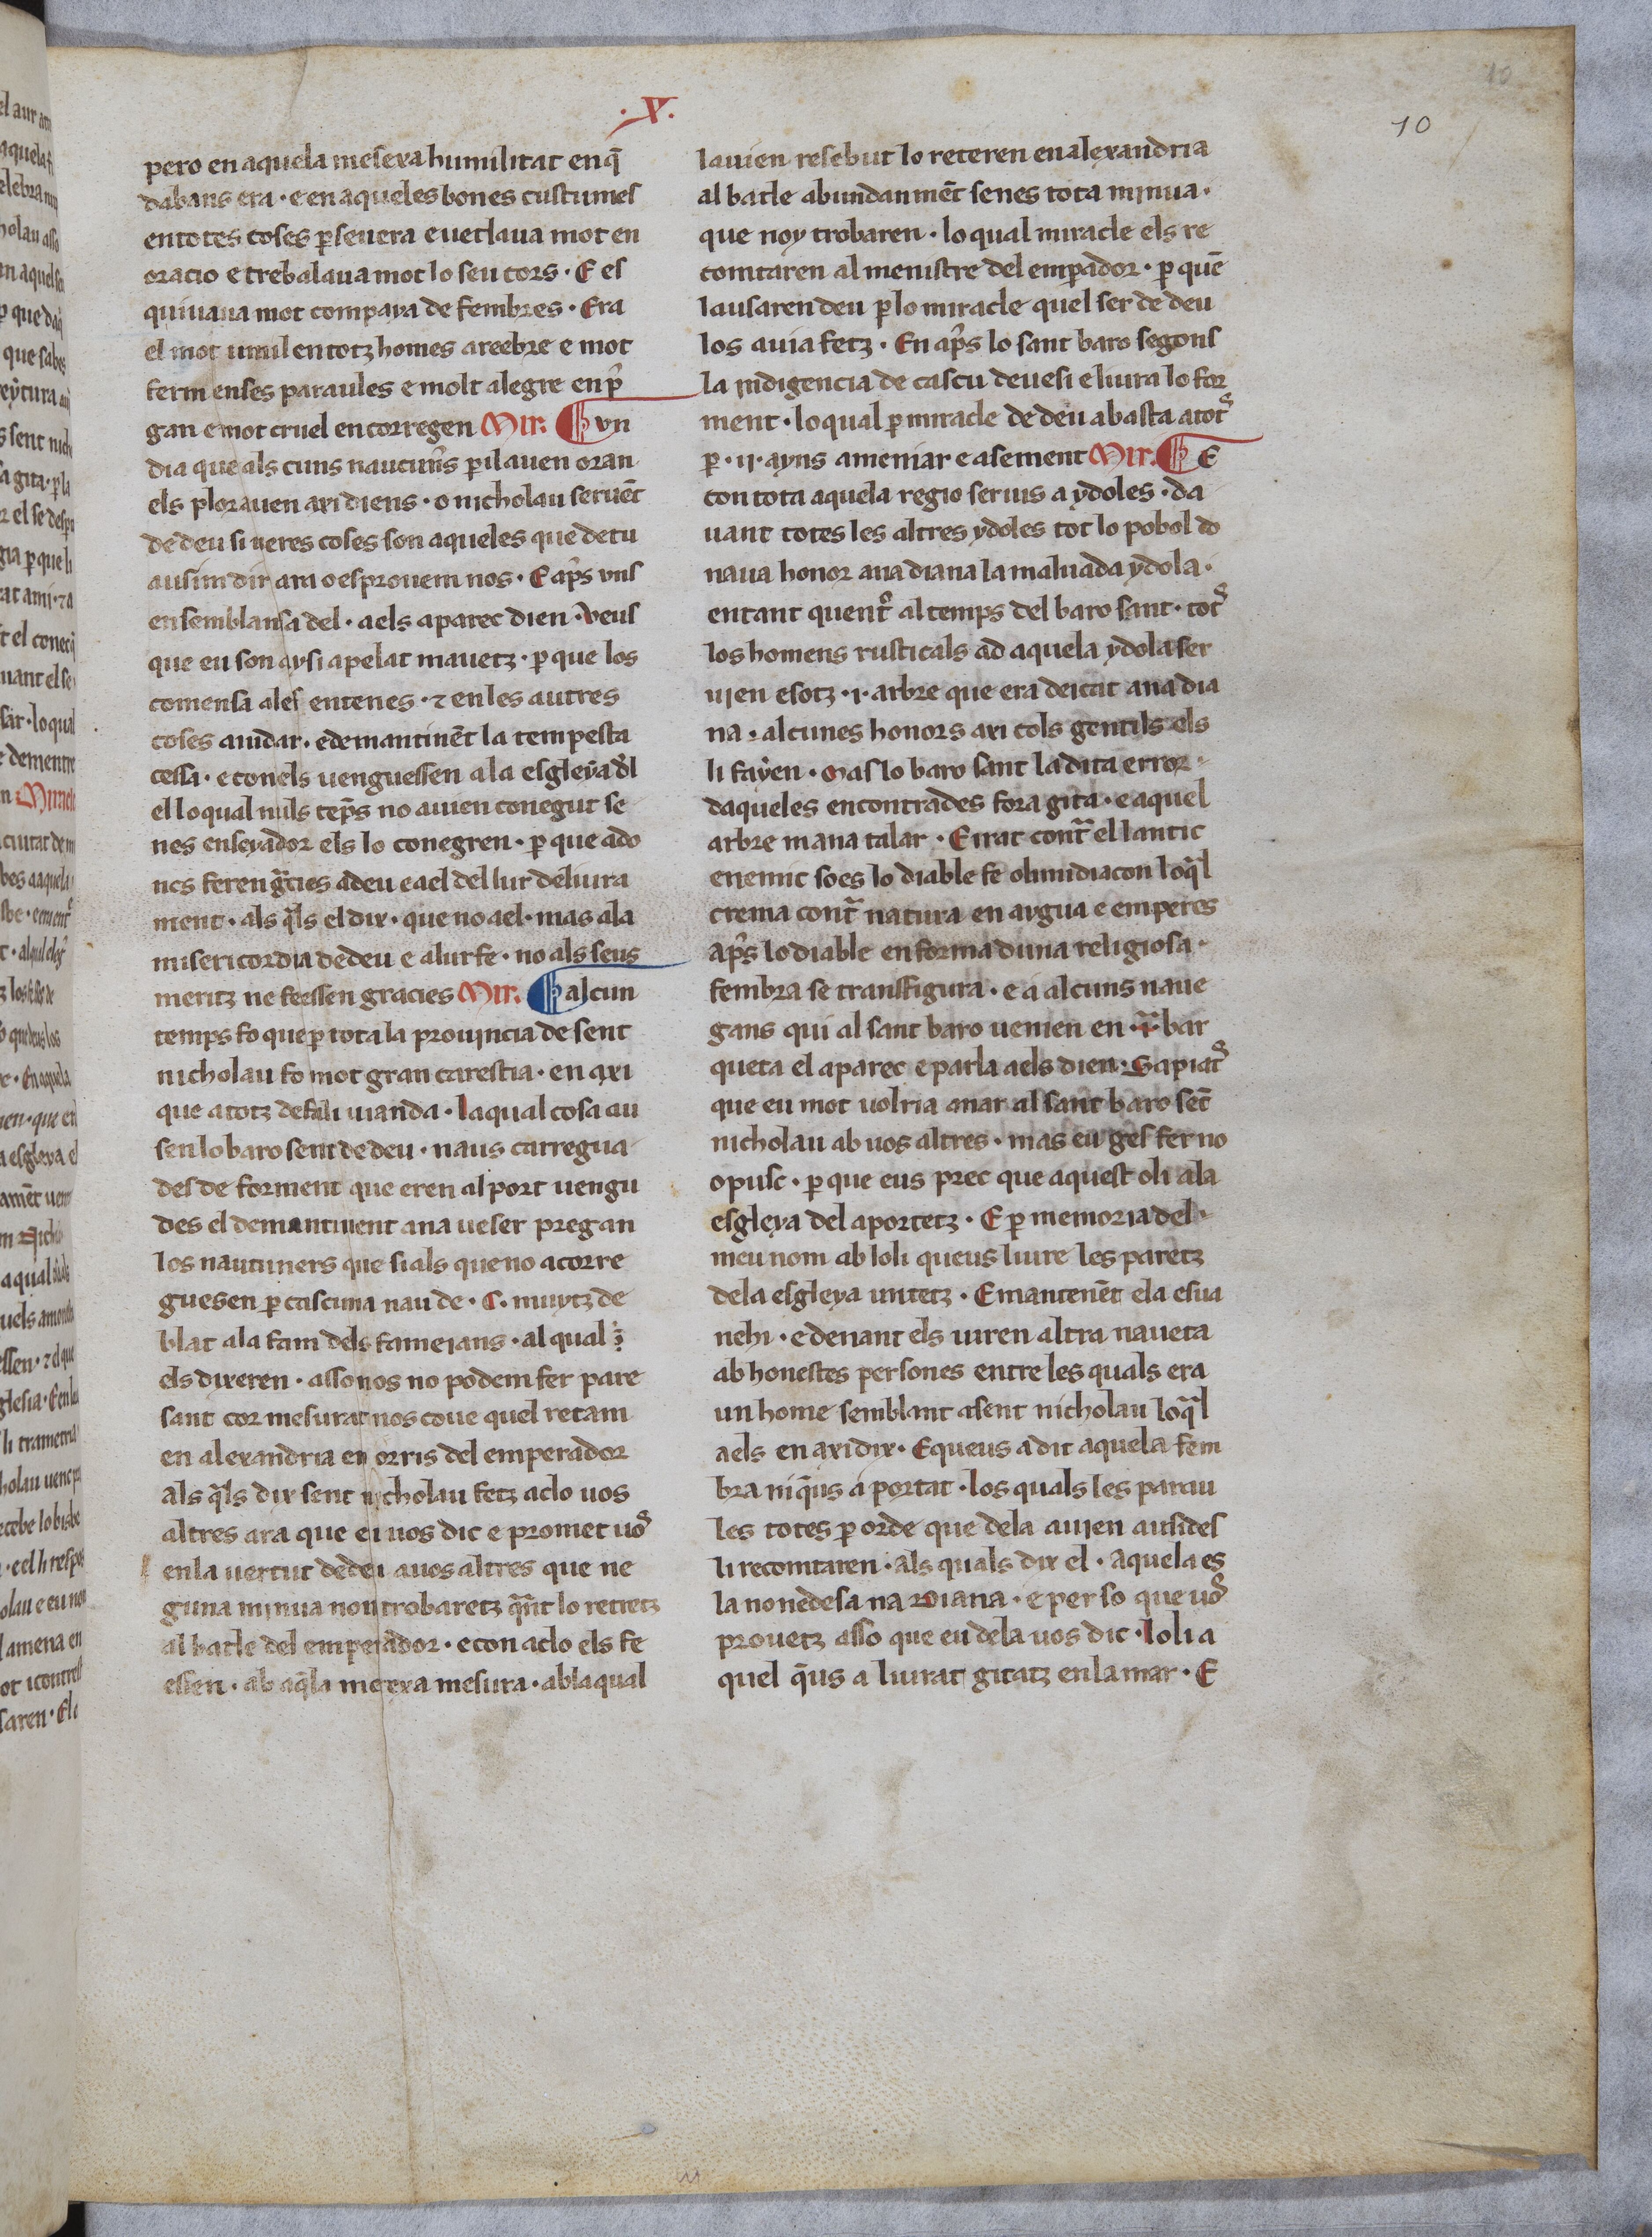 ·X·
10
10
pero en aquela mesexa humilitat en q̄
dabans era · e en aqueles bones custumes
en totes coses p̲seuera e uetlaua mot en
oracio e trebalaua mot lo seu cors · E es
quiuaua mot companya de fembres · Era
el mot umil en totz homes a reebre e mot
ferm en ses paraules e molt alegre en p̄
gan e mot cruel en corregen Mir. ¶ vn
dia que als cuns nautun̄s peril auen oran
els plorauen axi diens · o nicholau seruēt
de deu si ueres coses son aqueles que de tu
ausim dir am o esprouem nos · E ap̄s vns
en semblansa del · a els aparec dien · veus
que eu son aysi apelat mauetz · p̲ que los
comensa ales entenes · ⁊ en les autres
coses aiudar · e demantinēt la tempesta
cessa · e con els uenguessen a la esgleya d̄l
el lo qual nuls tēps no auien conegut se
nes enseyador els lo conegren · p̲ que ado
ncs feren gc̄ies a deu e a el del lur deliura
ment · als q̄ls el dix · que no a el · mas a la
misericordia de deu e a lur fe · no als seus
meritz ne feessen gracies Mir. ¶ alcun
temps fo que p̲ tota la prouincia de sent
nicholau fo mot gran carestia · en axi
que a totz defali uianda · laqual cosa au
sen lo baro sent de deu · naus carregua
des de forment que eren al port uengu
des el demantinent ana ueser pregan
los nautuners que sials que no acorre
guesen p̲ cascuna nau de · C · muytz de
blat a la fam dels famejans · al qual
els dixeren · asso nos no podem fer pare
sant cor mesurat nos coue quel retam
en alexandria en orris del emperador
als q̄ls dix sent nicholau fetz aclo uos
altres ara que eu uos dic e promet uos
en la uertut de deu a uos altres que ne
guna minua non trobaretz q̄nt lo retretz
al batle del emperador · e con aclo els fe
essen · ab aq̄la mexexa mesura · ab la qual
lauien resebut lo reteren en alexandria
al batle abundanmēt senes tota minua ·
que noy trobaren · lo qual miracle els re
comtaren al menistre del emp̲ador · p̲ quē
lausaren deu p̲ lo miracle quel ser de deu
los auia fetz · En ap̄s lo sant baro segons
la indigencia de cascu deuesi e liura lo for
ment · lo qual p̲ miracle de deu abasta a tots
p̲ · ij · ayns a meniar e a sement Mir. ¶ E
con tota aquela regio seruis a ydoles · da
uant totes les altres ydoles tot lo pobol do
naua honor a na diana la maluada ydola ·
en tant quentro al temps del baro sant · tots
los homens rusticals ad aquela ydola ser
uien e sotz · i · arbre que era deitat a na dia
na · alcunes honors axi cols gentils els
li fayen · Mas lo baro sant la dita error ·
daqueles encontrades fora gita · e aquel
arbre mana talar · E irat cont̄ el lantic
enemic so es lo diable fe oli midiacon loq̄l
crema cont̄ natura en aygua e en peres
ap̄s lo diable en forma duna religiosa ·
fembra se transfigura · e a alcuns naue
gans qui al sant baro uenien en · ·i· bar
queta el aparec e parla a els dien · Sapiats
que eu mot uolria anar al sant baro sēt
nicholau ab uos altres · mas eu ges fer no
o pusc · p̲ que eus prec que aquest oli a la
esgleya del aportetz · E p̲ memoria del
meu nom ab loli queus liure les paretz
de la esgleya untetz · E mantenēt ela esua
nehi · e denant els uiren altra naueta
ab honestes persones entre les quals era
un home semblant a sent nicholau loq̄l
a els en axi dix · E queus a dit aquela fem
bra ni q̄us a portat · los quals les parau
les totes p̲ orde que dela auien ausides
li recomtaren · als quals dix el · aquela es
la no nedesa na Diana · e per so que uos
prouetz asso que eu dela uos dic · loli a
quel q̄us a liurat gitatz en la mar · E